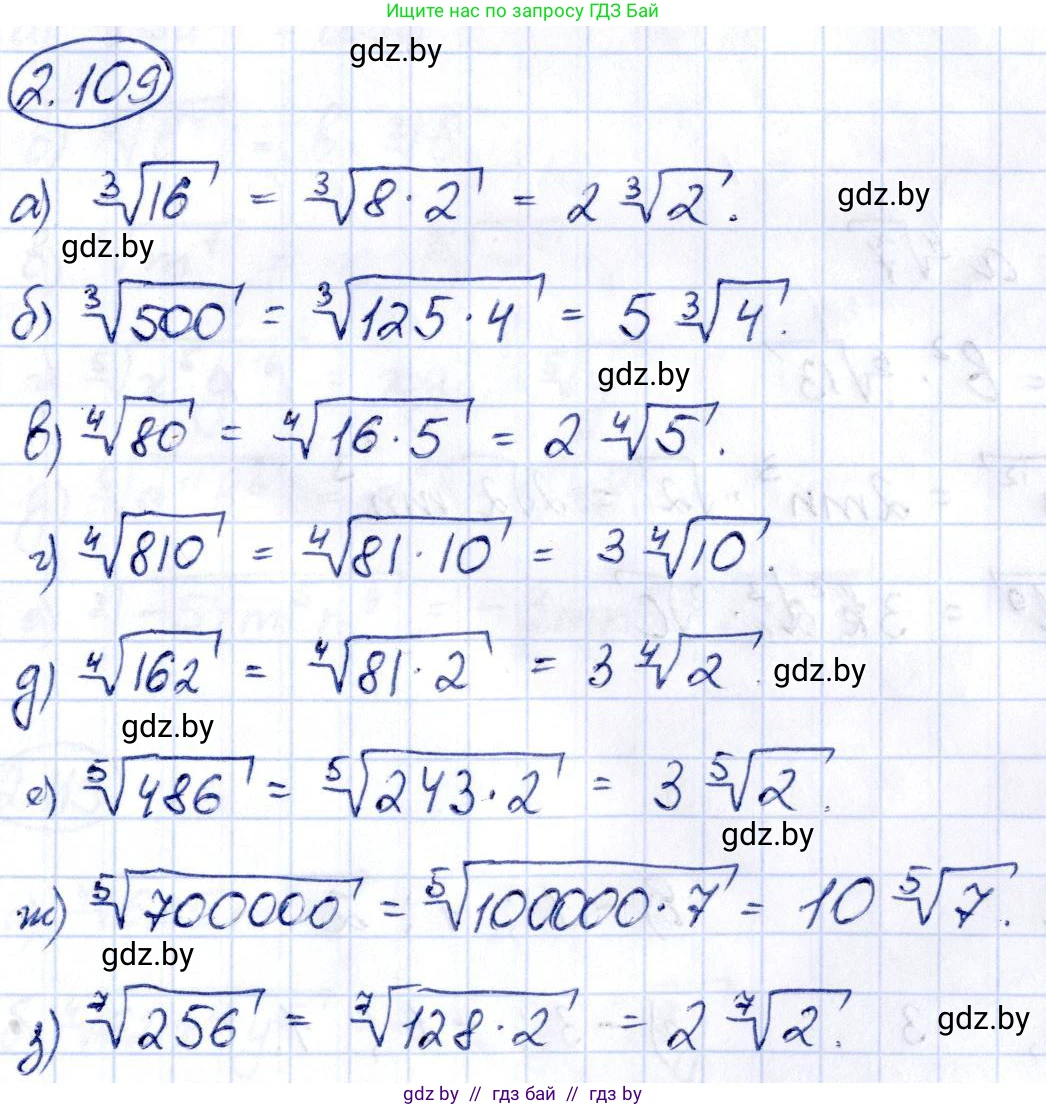 Ищите нас по запросу ГДЗ Бай
gdz.by
2.109
а) ∛16 = ∛8·2 = 2 ∛2. gdz.by
gdz.by
б) ∛500 = ∛125·4 = 5 ∛4.
gdz.by
в) ∜80 = ∜16·5 = 2 ∜5.
г) ∜810 = ∜81·10 = 3 ∜10.
д) ∜162 = ∜81·2 = 3 ∜2. gdz.by
gdz.by
е) ⁵√486 = ⁵√243·2 = 3 ⁵√2.
gdz.by
ж) ⁵√700000 = ⁵√100000·7 = 10 ⁵√7.
gdz.by
з) ⁷√256 = ⁷√128·2 = 2 ⁷√2. gdz.by
gdz.by // гдз бай // гдз by